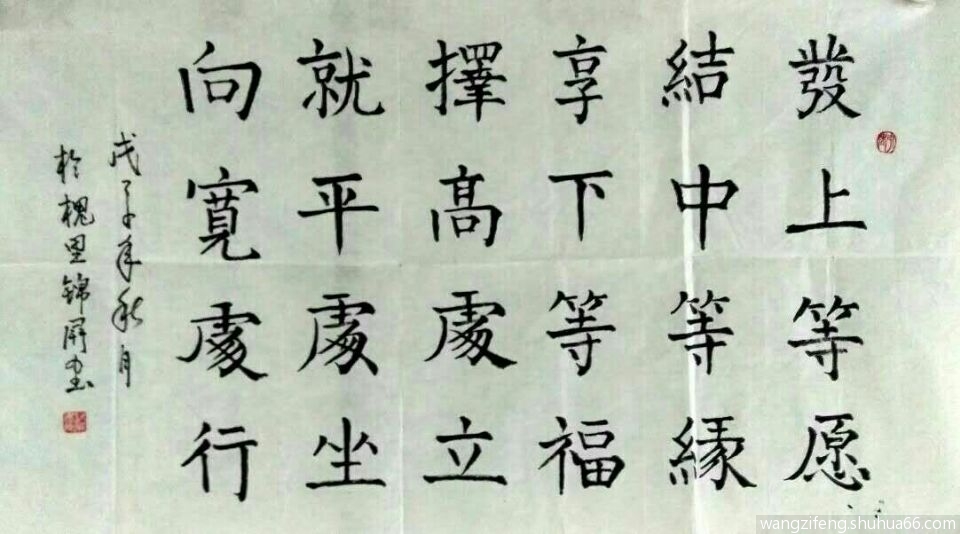 發上等愿
結中等緣
享下等福
擇高處立
就平處坐
向寬處行
戊子年秋月
於槐里錦屏書
wangzifeng.shuhua66.com